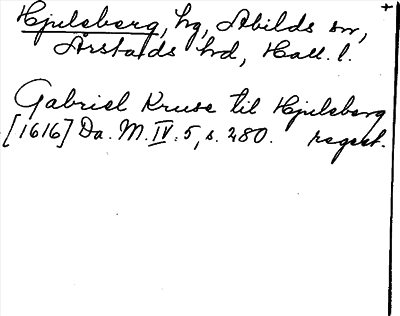 Hjulsberg, hg, Abilds sn,
Årstads hd, Hall. l.
Gabriel Kruse til Hjulsberg
[1616] Da. M. IV. 5, s. 280. regest.